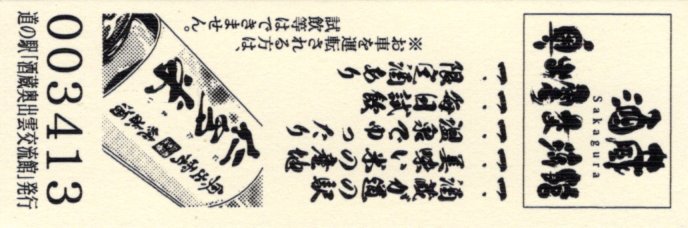 酒蔵
Sakagura
奥出雲交流館
一、酒蔵が道の駅
一、美味い米の産地
一、温泉でゆったり
一、毎日試飲
一、限定酒あり
※お車を運転される方は、
試飲等はできません。
003413
道の駅「酒蔵奥出雲交流館」発行